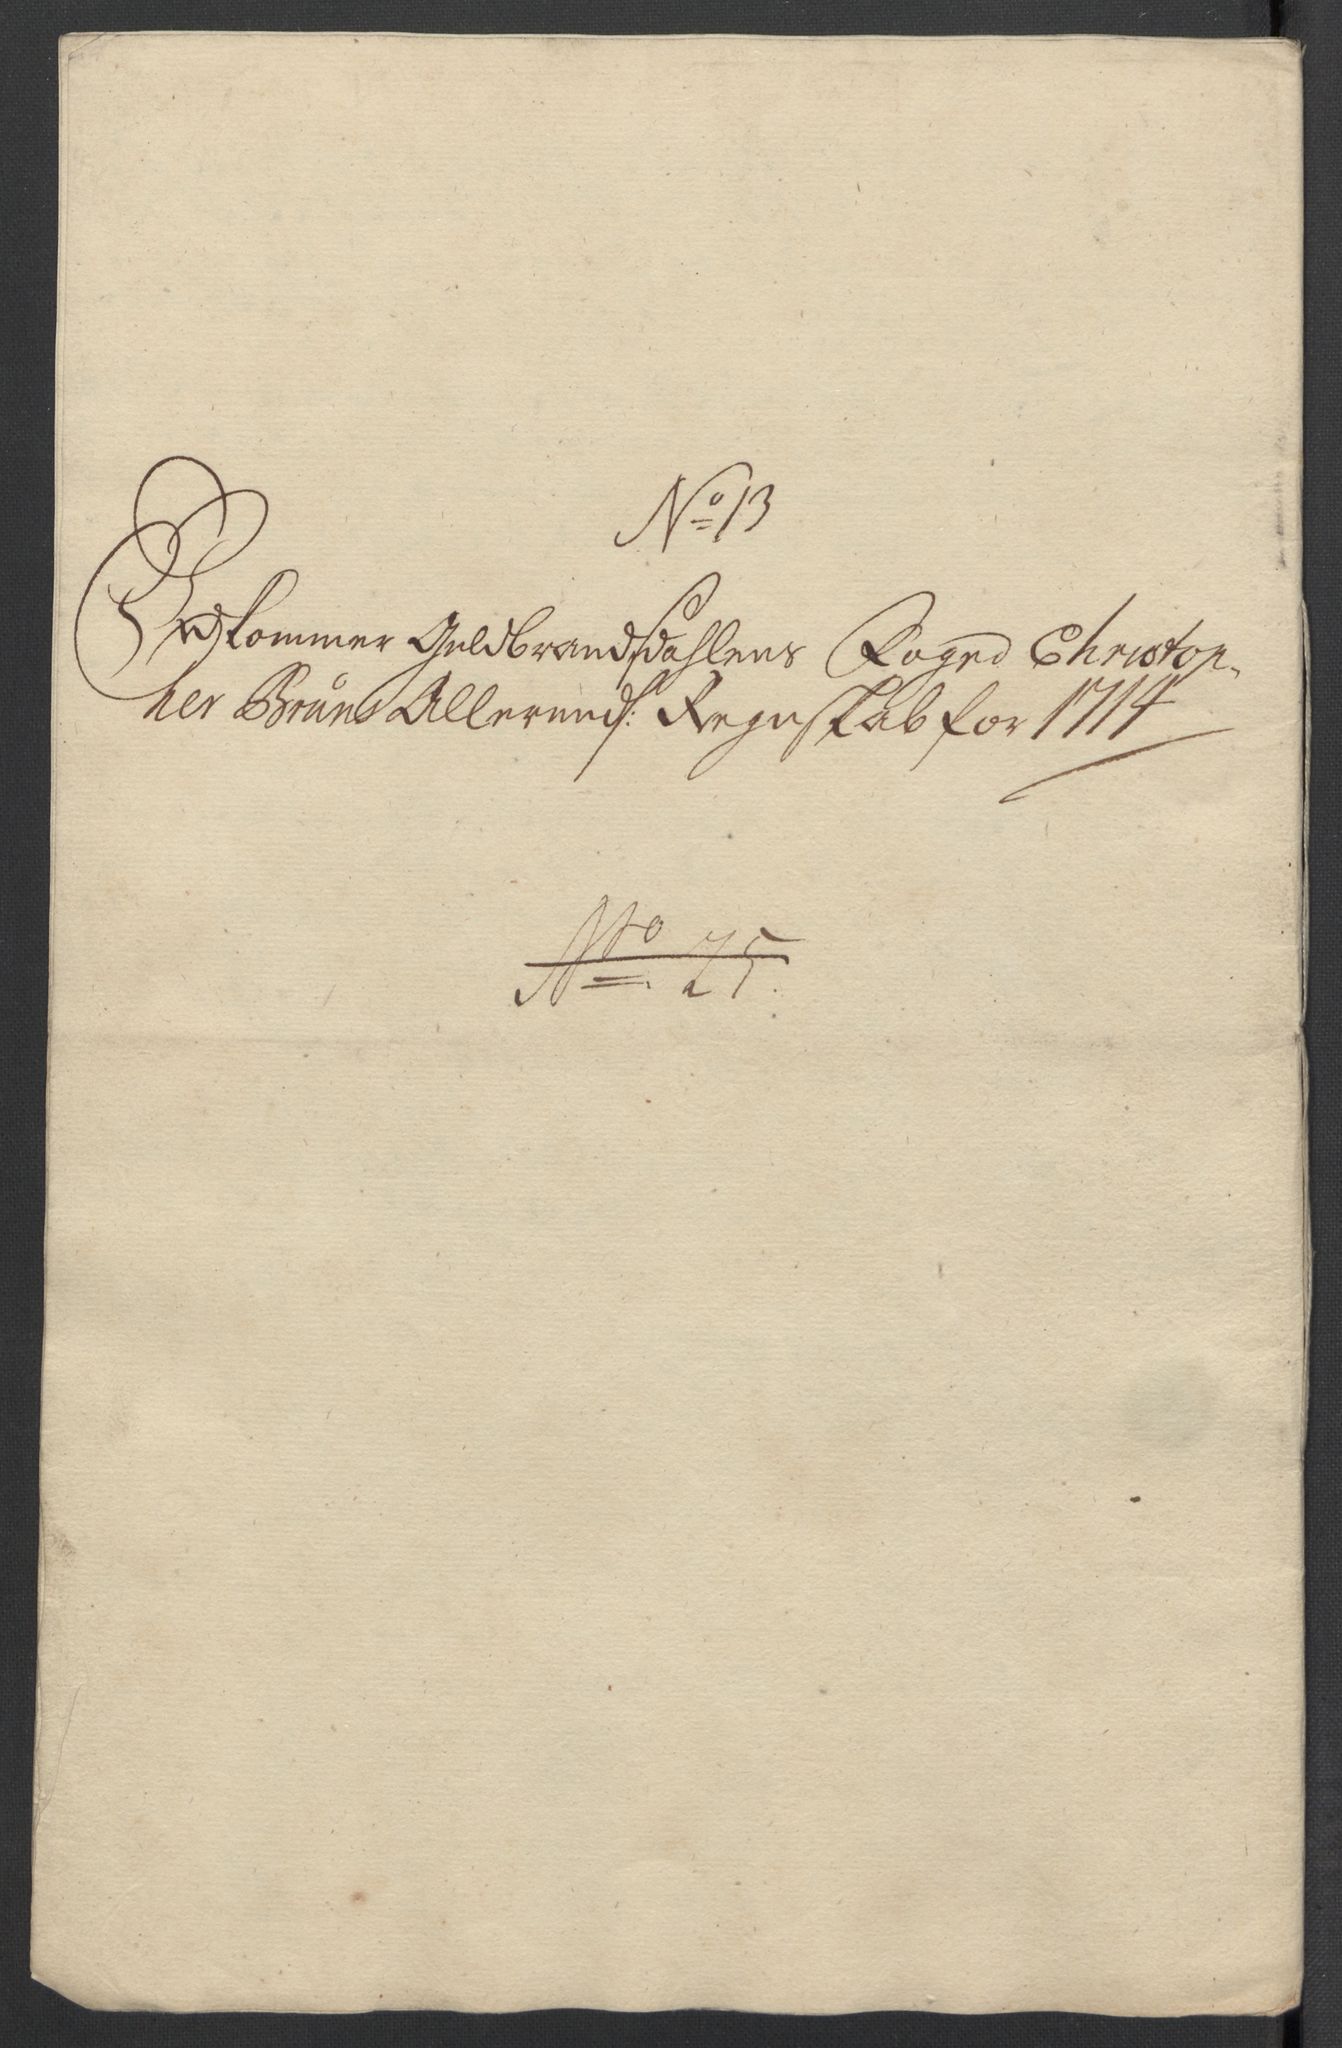 No 13
Vedkommer Guldbrandsdahlens Foged Christop-
her Bruns Allerunds: Regnskab for 1714
No. 25.